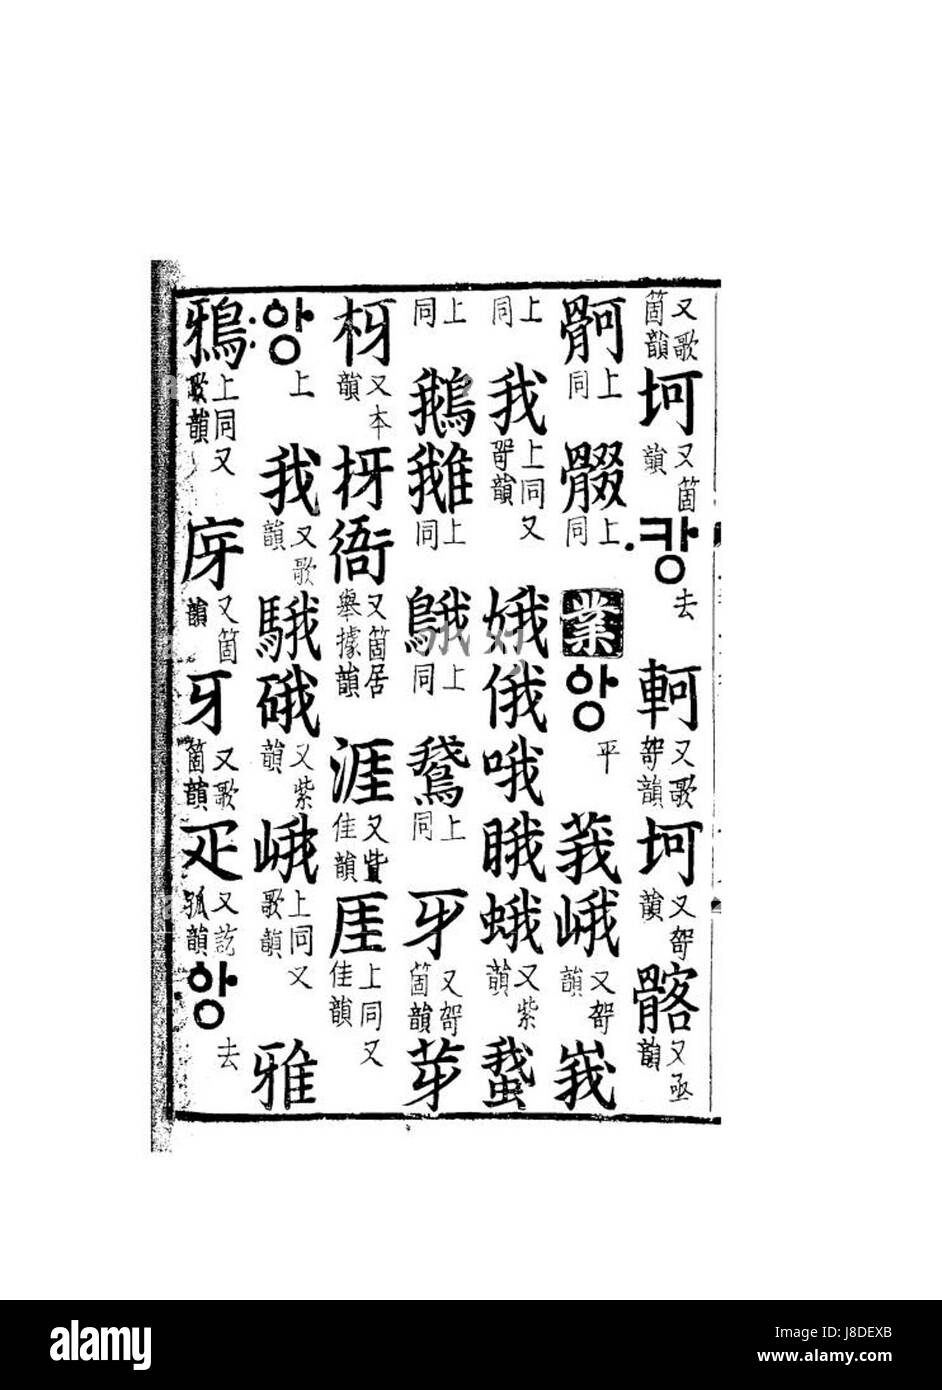 又歌箇韻坷又箇韻·캉去軻又歌哿韻坷又哿韻髂又亟韻
䯊上同上同業앙平莪峨又哿韻峩
上同我上同又哿韻娥俄哦睋蛾又紫韻䖸
上同鵝上同䳘上同鵞上同牙又哿箇韻芽
枒又本韻㧎衙又箇居擧據韻涯又貲佳韻厓上同又佳韻
:앙上我又歌韻騀硪又紫韻峨上同又歌韻雅
鴉上同又歌韻庌又箇韻牙又歌箇韻疋又訖孤韻·앙去
alamy
Image ID: J8DEXB
www.alamy.com